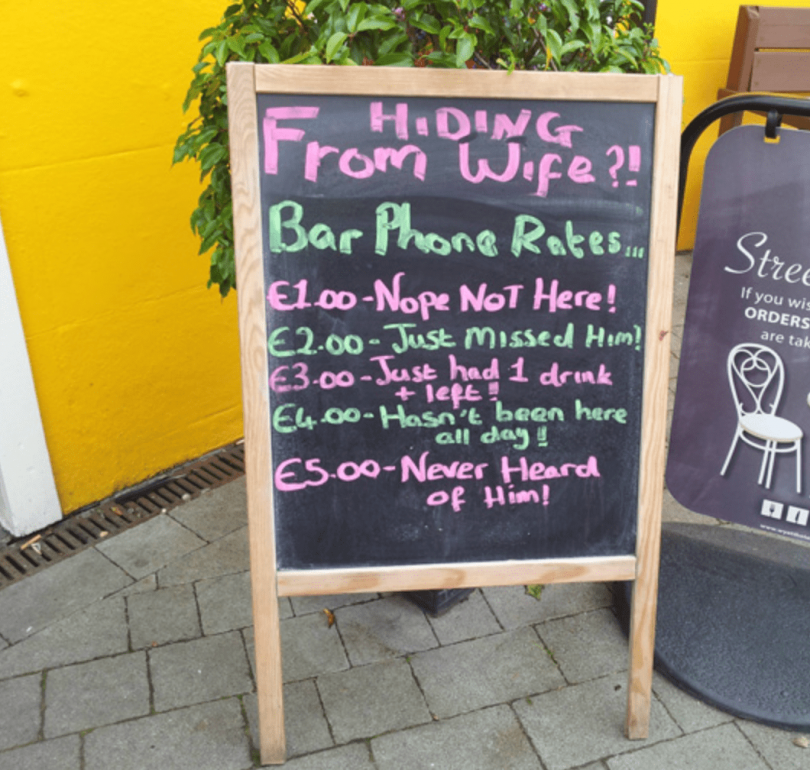 HIDING
From Wife?!
Bar Phone Rates...
€1.00-Nope NOT Here!
€2.00-Just Missed Him!
€3.00-Just had 1 drink
+ left!
€4.00-Hasn't been here
all day!!
€5.00-Never Heard
of Him!
If you
ORDERS
are